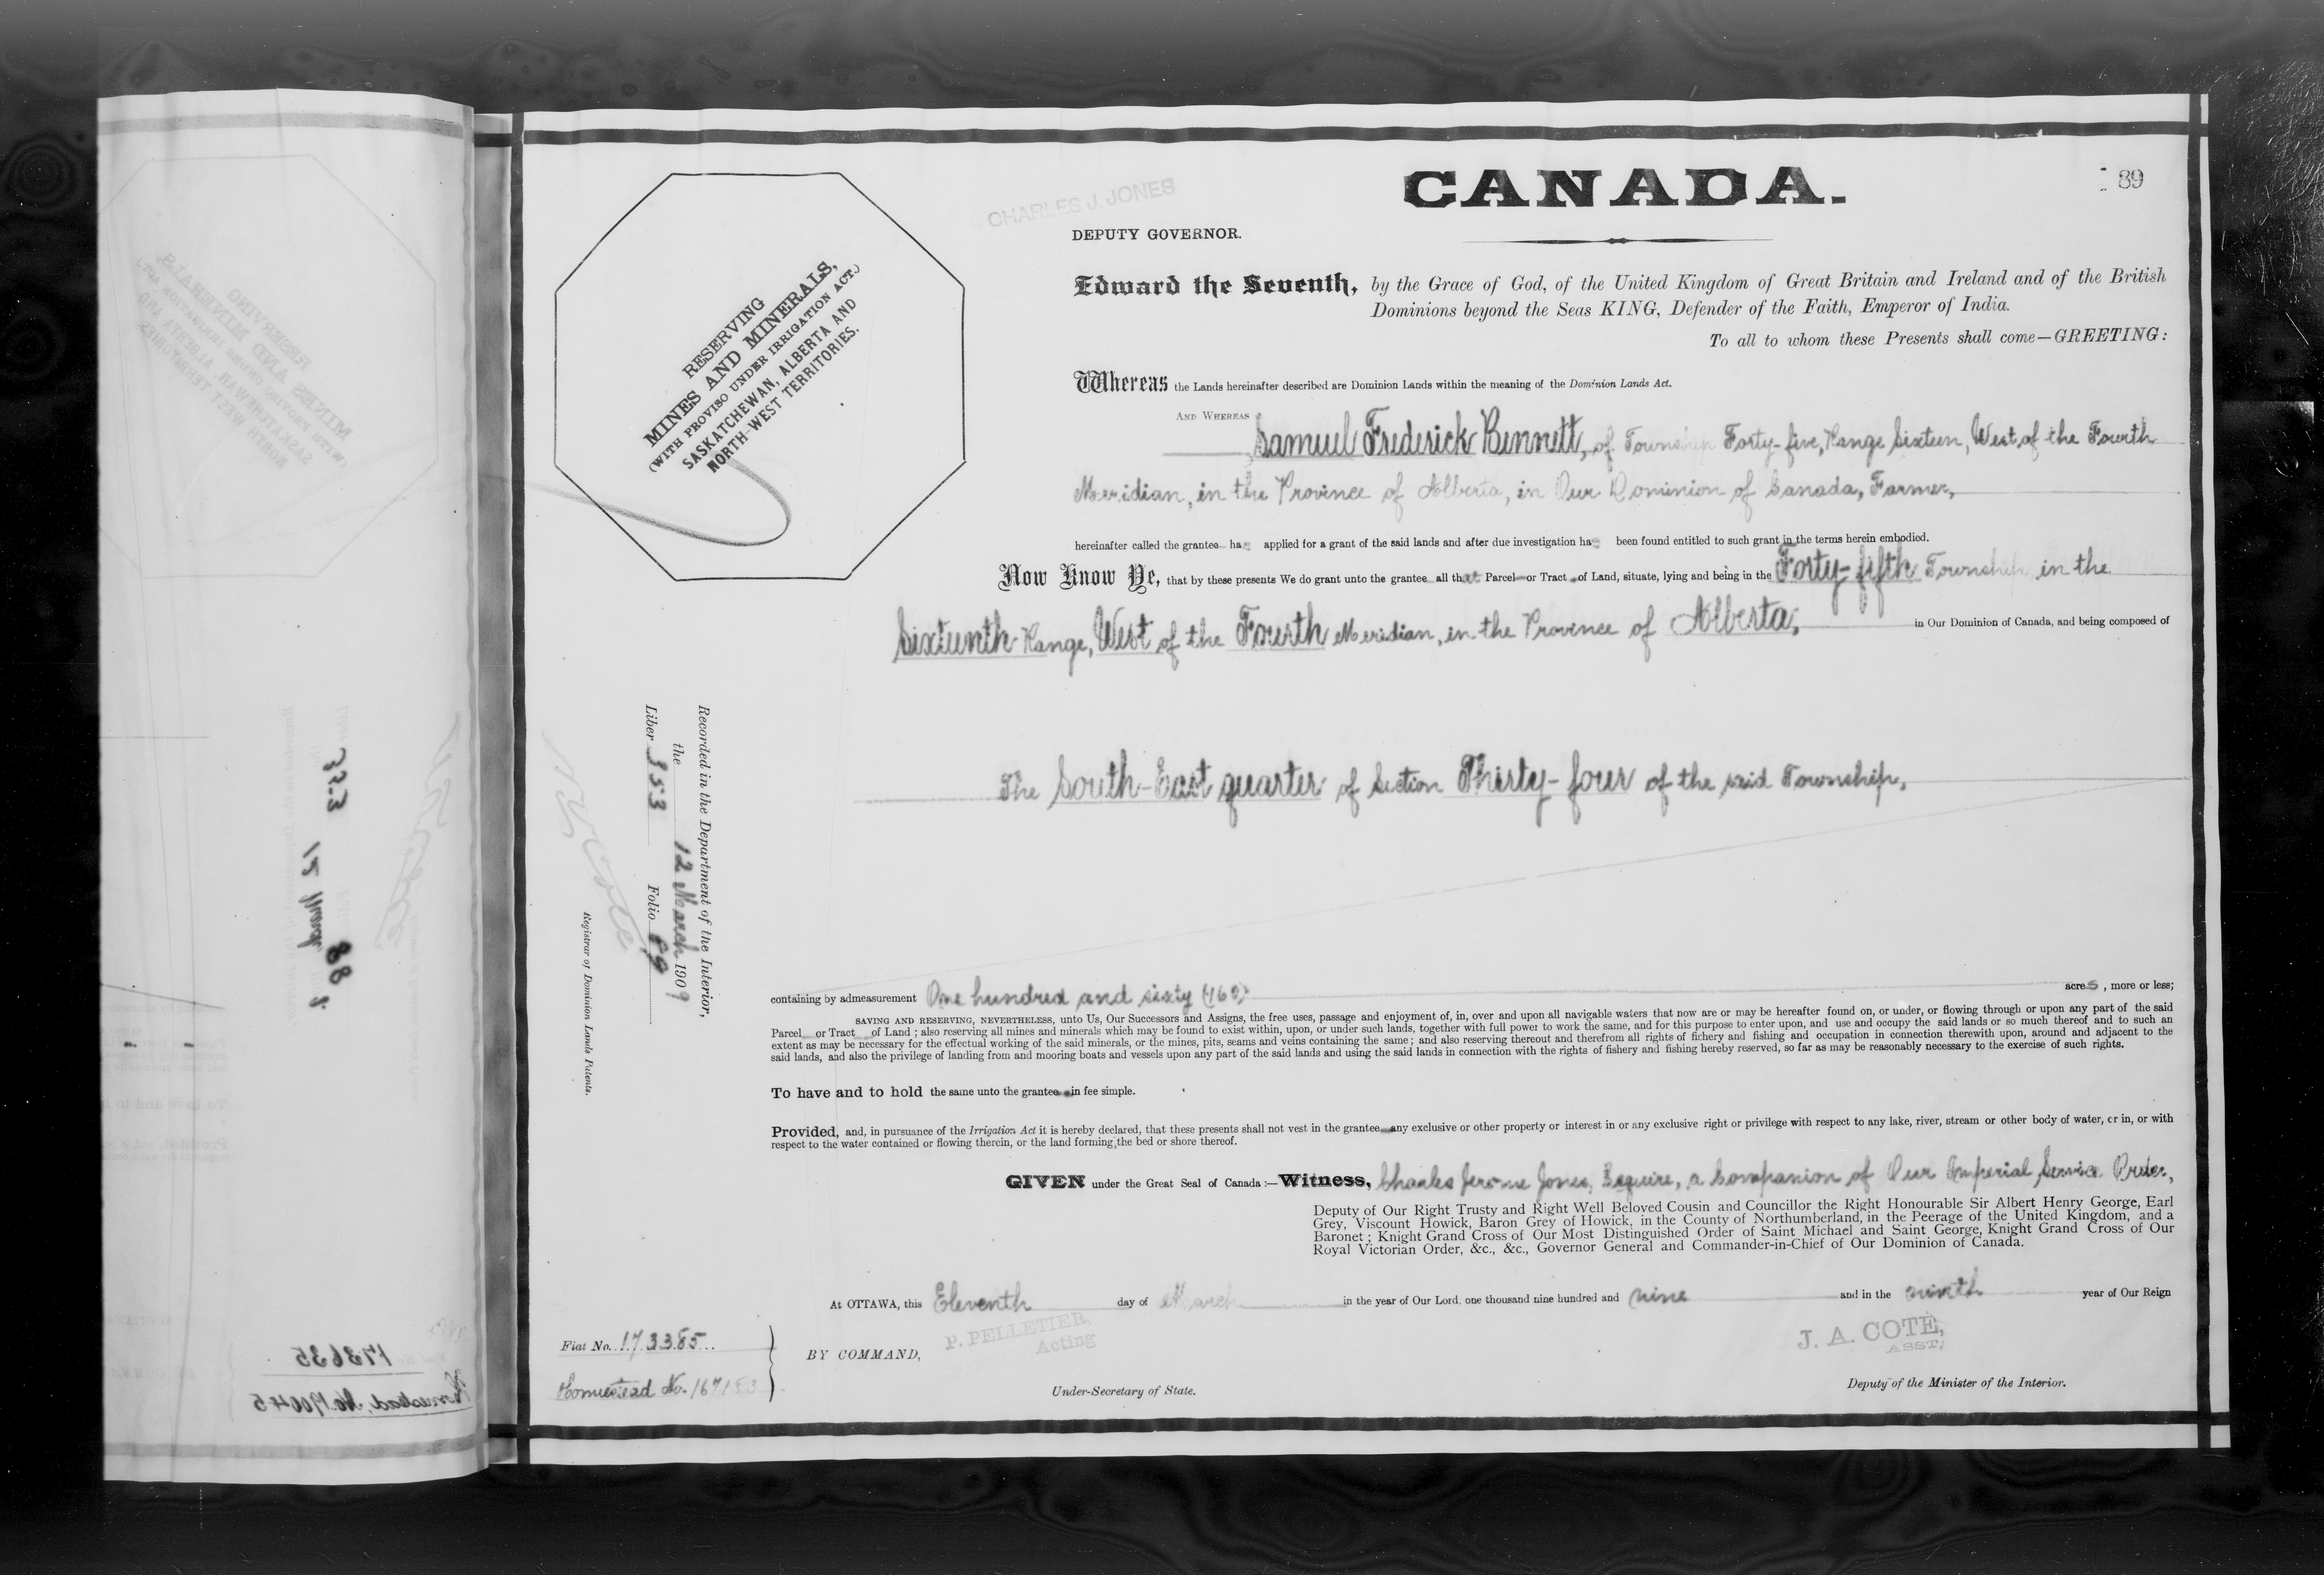 CANADA.
89
CHARLES J. JONES
DEPUTY GOVERNOR.
RESERVING
MINES AND MINERALS,
(WITH PROVISO UNDER IRRIGATION ACT.)
SASKATCHEWAN, ALBERTA AND
NORTH-WEST TERRITORIES.
Edward the Seventh, by the Grace of God, of the United Kingdom of Great Britain and Ireland and of the British
Dominions beyond the Seas KING, Defender of the Faith, Emperor of India.
To all to whom these Presents shall come—GREETING:
Whereas the Lands hereinafter described are Dominion Lands within the meaning of the Dominion Lands Act.
AND WHEREAS
Samuel Frederick Bennett, of Township Forty-five, Range Sixteen, West of the Fourth
Meridian, in the Province of Alberta, in Our Dominion of Canada, Farmer,
hereinafter called the grantee has applied for a grant of the said lands and after due investigation has been found entitled to such grant in the terms herein embodied.
Now Know Ye, that by these presents We do grant unto the grantee all that Parcel or Tract of Land, situate, lying and being in the Forty-fifth Township in the
Sixteenth Range, West of the Fourth Meridian, in the Province of Alberta, in Our Dominion of Canada, and being composed of
The South-East quarter of Section Thirty-four of the said Township,
Recorded in the Department of the Interior,
the 12 March 1909
Liber 353 Folio 89
Registrar of Dominion Lands Patents.
containing by admeasurement One hundred and sixty (160) acres, more or less;
SAVING AND RESERVING, NEVERTHELESS, unto Us, Our Successors and Assigns, the free uses, passage and enjoyment of, in, over and upon all navigable waters that now are or may be hereafter found on, or under, or flowing through or upon any part of the said
Parcel or Tract of Land ; also reserving all mines and minerals which may be found to exist within, upon, or under such lands, together with full power to work the same, and for this purpose to enter upon, and use and occupy the said lands or so much thereof and to such an
extent as may be necessary for the effectual working of the said minerals, or the mines, pits, seams and veins containing the same ; and also reserving thereout and therefrom all rights of fichery and fishing and occupation in connection therewith upon, around and adjacent to the
said lands, and also the privilege of landing from and mooring boats and vessels upon any part of the said lands and using the said lands in connection with the rights of fishery and fishing hereby reserved, so far as may be reasonably necessary to the exercise of such rights.
To have and to hold the same unto the grantee in fee simple.
Provided, and, in pursuance of the Irrigation Act it is hereby declared, that these presents shall not vest in the grantee any exclusive or other property or interest in or any exclusive right or privilege with respect to any lake, river, stream or other body of water, or in, or with
respect to the water contained or flowing therein, or the land forming the bed or shore thereof.
GIVEN under the Great Seal of Canada :—Witness, Charles Jerome Jones, Esquire, a Companion of Our Imperial Service Order,
Deputy of Our Right Trusty and Right Well Beloved Cousin and Councillor the Right Honourable Sir Albert Henry George, Earl
Grey, Viscount Howick, Baron Grey of Howick, in the County of Northumberland, in the Peerage of the United Kingdom, and a
Baronet ; Knight Grand Cross of Our Most Distinguished Order of Saint Michael and Saint George, Knight Grand Cross of Our
Royal Victorian Order, &c., &c., Governor General and Commander-in-Chief of Our Dominion of Canada.
At OTTAWA, this Eleventh day of March in the year of Our Lord one thousand nine hundred and nine and in the ninth year of Our Reign
Fiat No. 173385
Homestead No. 167153
BY COMMAND,
P. PELLETIER,
Acting
Under-Secretary of State.
J. A. COTE,
ASST.
Deputy of the Minister of the Interior.
173635
Homestead No. 170045